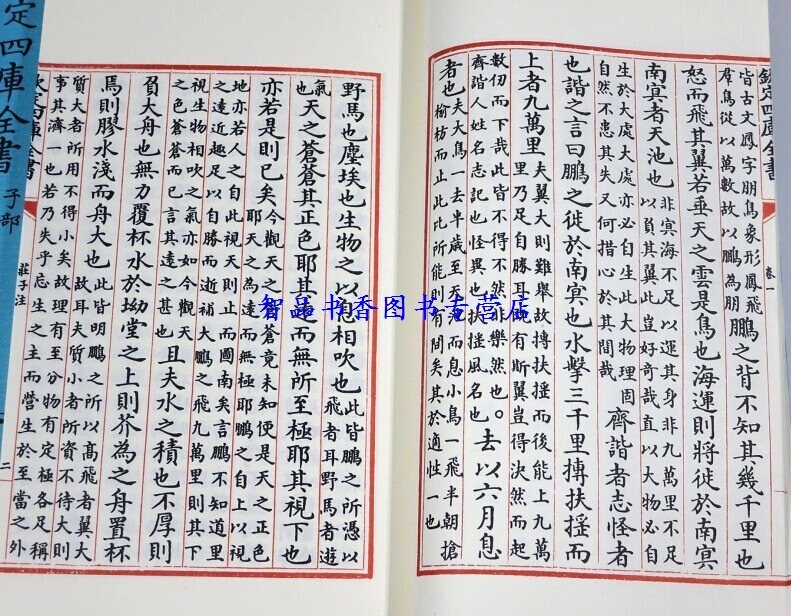 欽定四庫全書
卷一
皆古文鳳字朋鳥象形鳳飛
群鳥從以萬數故以鵬為朋
鵬之背不知其幾千里也
怒而飛其翼若垂天之雲是鳥也海運則將徙於南冥
南冥者天池也
非冥海不足以運其身非九萬里不足
以負其翼此豈好奇哉直以大物必自
生於大處大處亦必自生此大物理固
自然不患其失又何措心於其間哉
齊諧者志怪者
也諧之言曰鵬之徙於南冥也水擊三千里摶扶搖而
上者九萬里
夫翼大則難舉故摶扶搖而後能上九萬
里乃足自勝耳既有斯翼豈得決然而起
數仞而下哉此皆不得不然非樂然也。
齊諧人姓名志記也怪異也扶搖風名也
去以六月息
者也
夫大鳥一去半歲至天池而息小鳥一飛半朝搶
榆枋而止此比所能則有間矣其於適性一也
野馬也塵埃也生物之以息相吹也
此皆鵬之所憑以
飛者耳野馬者遊
氣也
天之蒼蒼其正色耶其遠而無所至極耶其視下也
亦若是則已矣
今觀天之蒼蒼竟未知便是天之正色
耶天之為遠而無極耶鵬之自上以視
地亦若人之自此視天則止而圖南矣言鵬不知道里
之遠近趣足以自勝而逝補大鵬之飛九萬里則其下
視生物相吹之氣亦如今觀天
之色蒼蒼而已言其遠之甚也
且夫水之積也不厚則
負大舟也無力覆杯水於坳堂之上則芥為之舟置杯
焉則膠水淺而舟大也
此皆明鵬之所以高飛者翼大
故耳夫質小者所資不待大則
質大者所用不得小矣故理有至分物有定極各足稱
事其濟一也若乃失乎忘生之主而營生於至當之外
欽定四庫全書
莊子注
二
定四庫全書
子部
智品书香图书专营店